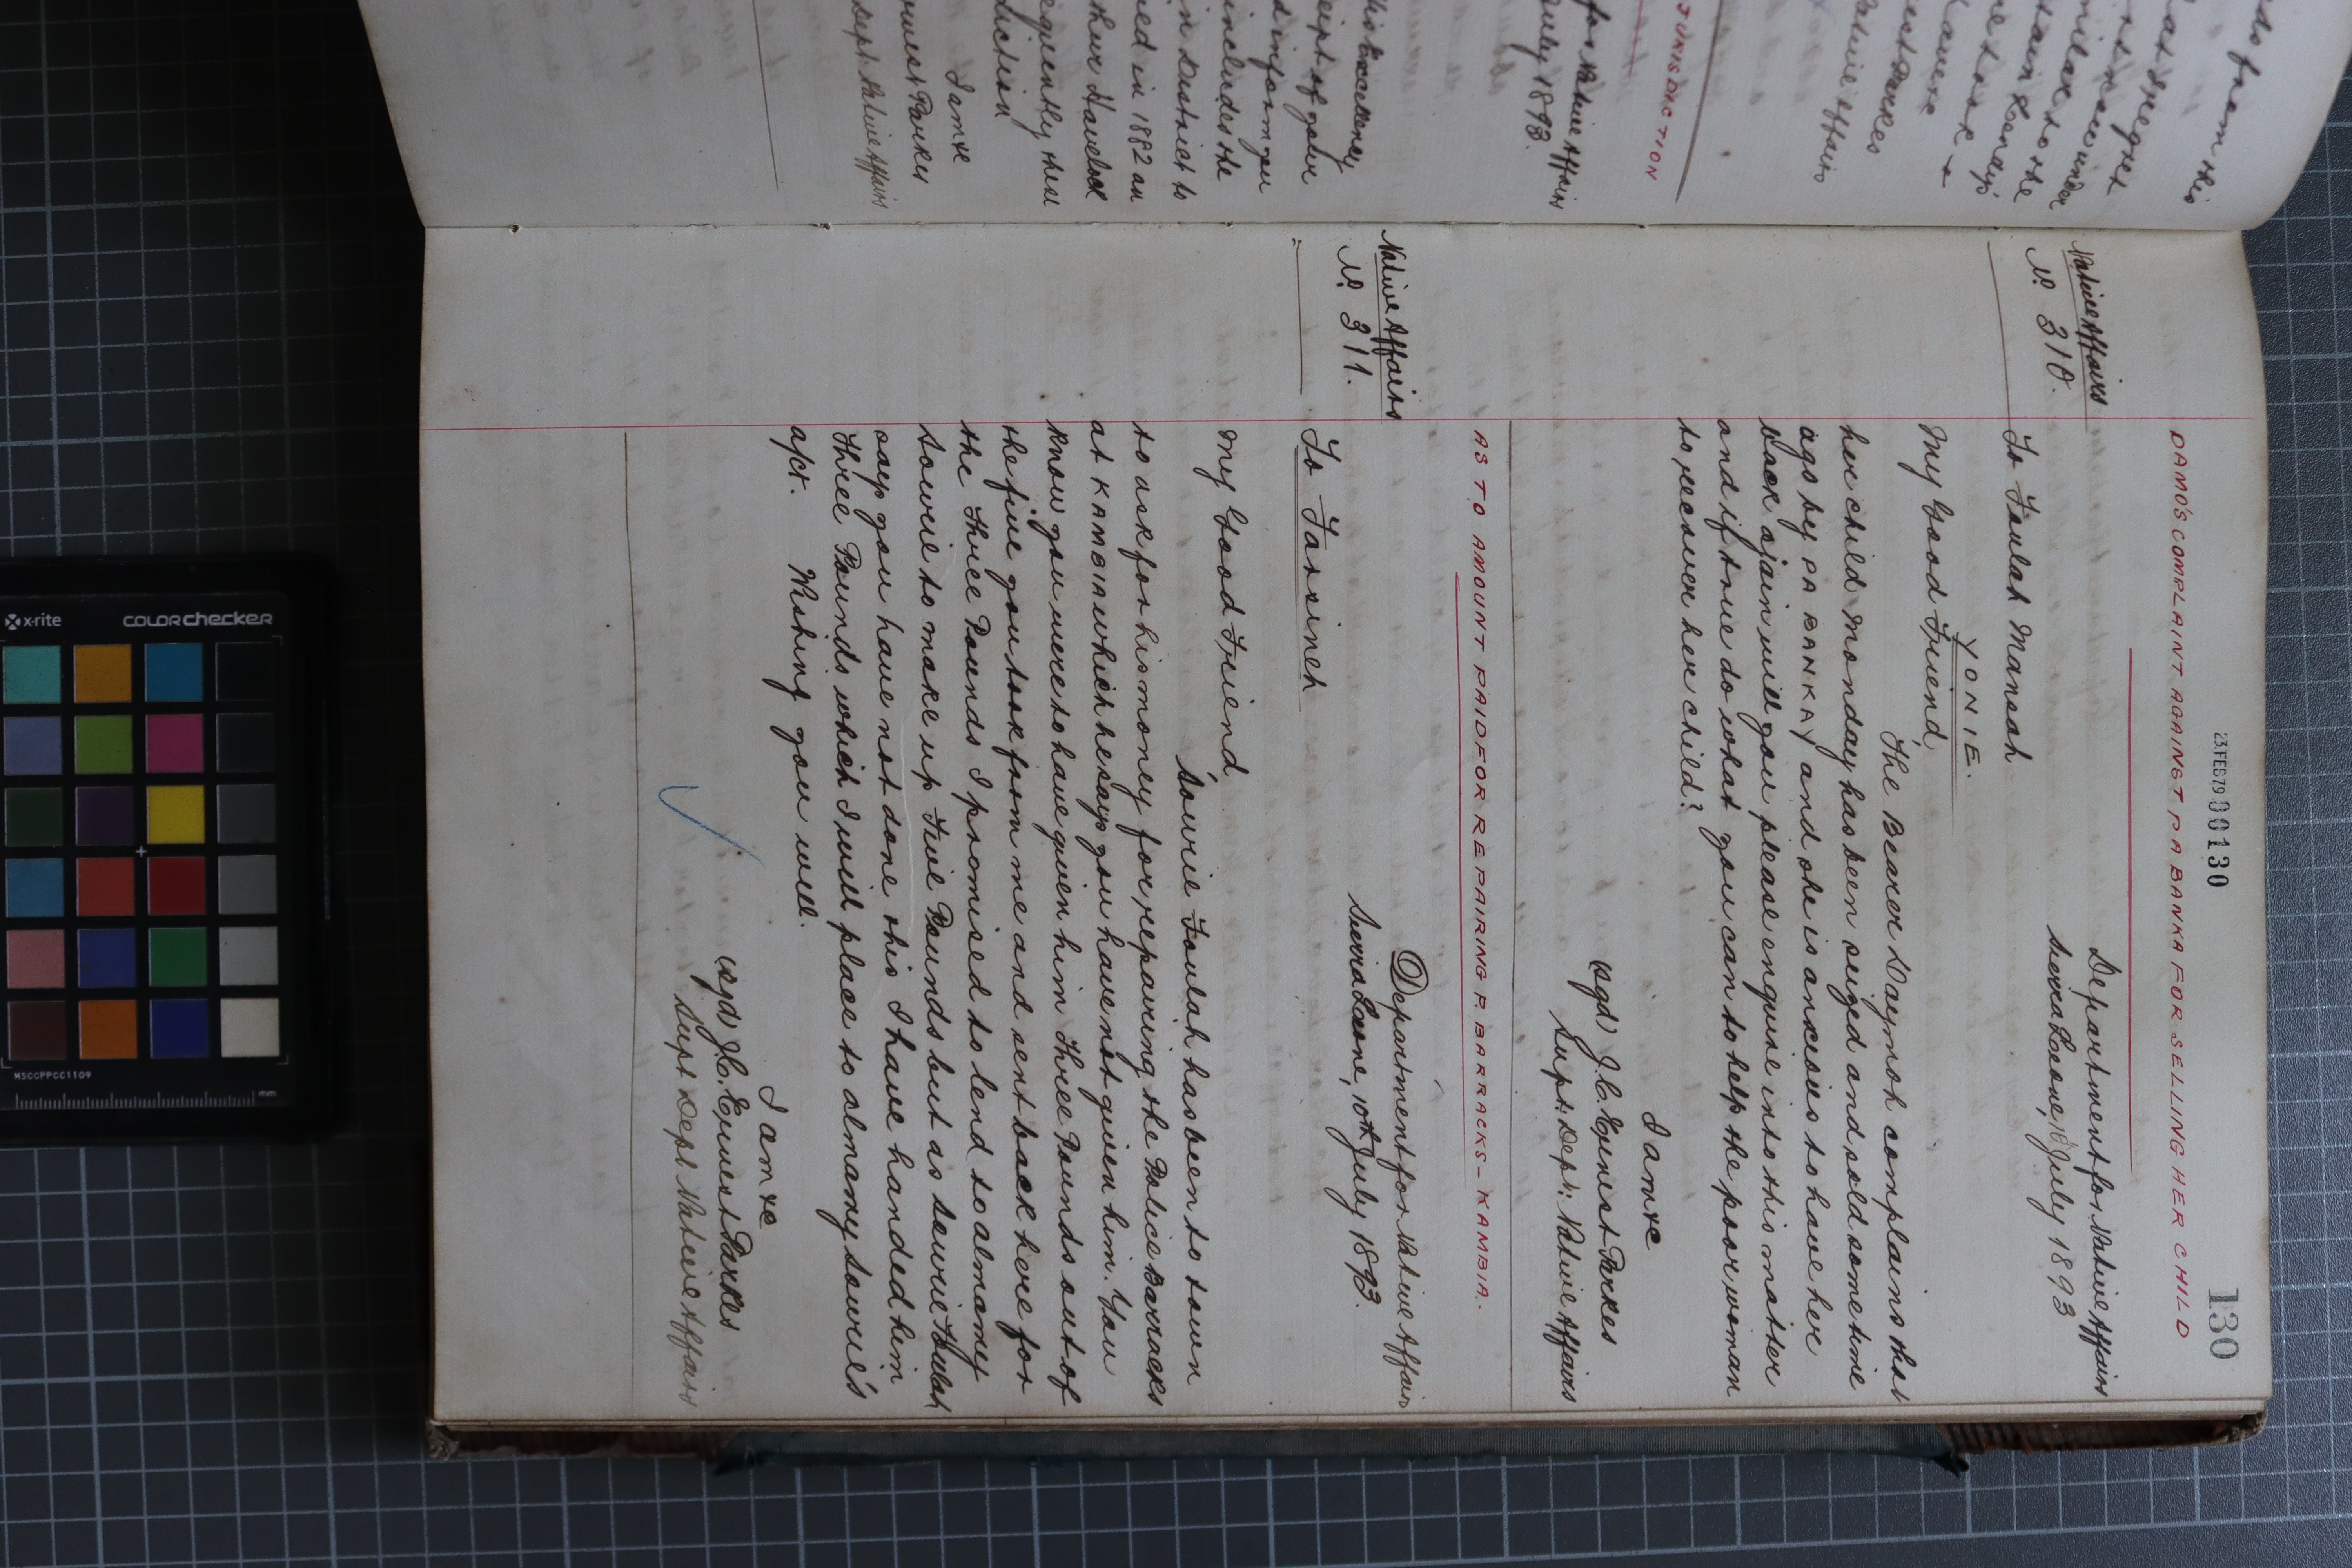 do from this
Native Affairs
July 1893.
JURISDICTION
for Native Affairs
His Excellency
receipt of your
inform you
includes the
in District to
in 1882 an
Havelock
I am &c
Ernest Parkes
Dept Native Affairs
23 FEB 79 00130
130
DAMO'S COMPLAINT AGAINST PA BANKA FOR SELLING HER CHILD
Native Affairs
No 310.
Department for Native Affairs
Sierra Leone, 10 July 1893
To Foulah Mansah
YONIE.
My Good Friend,
The Bearer Daymoh complains that
her child Monday has been seized and sold some time
ago by PA BANKAY and she is anxious to have her
back again will you please enquire into this matter
and if true do what you can to help the poor woman
to recover her child?
I am &c
(sgd) J.C. Ernest Parkes
Supt: Dept: Native Affairs
AS TO AMOUNT PAID FOR REPAIRING P. BARRACKS - KAMBIA.
Native Affairs
No 311.
Department for Native Affairs
Sierra Leone, 10th July 1893.
To Farsineh
My Good Friend
Sowrie Foulah has been to town
to ask for his money for repairing the Police Barracks
at KAMBIA which he says you have not given him. You
know you were to have given him Three Pounds out of
the five you took from me and sent back here for
the Three Pounds I promised to lend to Almamy
Sowrie to make up Five Pounds but as Sowrie Foulah
says you have not done this I have handed him
Three Pounds which I will place to Almamy Sowrie's
a/ct. Wishing you well.
I am &c
(sgd) J.C. Ernest Parkes
Supt Dept Native Affairs
x-rite
COLORCHECKER
MSCCPPCC1109
mm